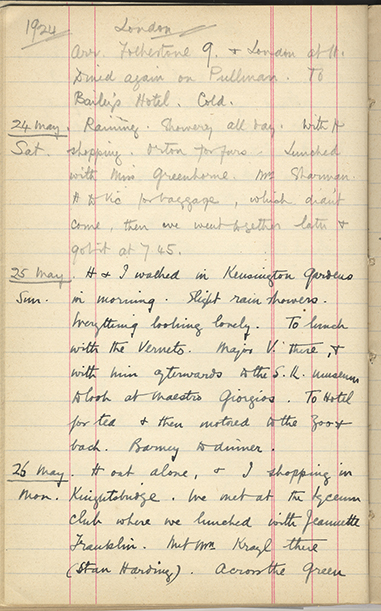 1924 London
Arr. Folkestone 9. & London at 11.
Dined again on Pullman. To
Bailey's Hotel. Cold.
24 May. Raining. Showery all day. With H
Sat. shopping. Orton for furs. Lunched
with Miss Greenhorne. Mrs Sharman.
H to Vic for baggage, which didn't
come, then we went together later &
got it at 7.45.
25 May. H & I walked in Kensington Gardens
Sun. in morning. Slight rain showers.
Everything looking lovely. To lunch
with the Vernets. Major V. there, &
with him afterwards to the S.K. museum
to look at Maestro Giorgios. To Hotel
for tea & then motored to the Zoo &
back. Barney to dinner.
26 May. H out alone, & I shopping in
Mon. Knightsbridge. We met at the Lyceum
Club where we lunched with Jeannette
Franklin. Met Mrs Krayl there
(Stan Harding). Across the Green